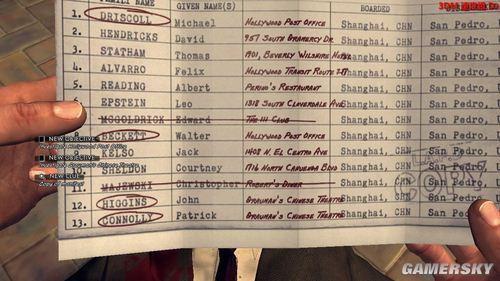 FAMILY NAME GIVEN NAME(S) BOARDED
1. DRISCOLL Michael Hollywood Post Office Shanghai, CHN San Pedro,
2. HENDRICKS David 957 South Gramercy Dr. Shanghai, CHN San Pedro,
3. STATHAM Thomas 1901, Beverly Wilshire Shanghai, CHN San Pedro, U
4. ALVARRO Felix Hollywood Transit Route Shanghai, CHN San Pedro, U
5. READING Albert Perino's Restaurant Shanghai, CHN San Pedro, U
EPSTEIN Leo 1318 South Cloverdale Ave. Shanghai, CHN San Pedro, U
MCGOLDRICK Edward The 111 Club Shanghai, CHN San Pedro, U
NEW OBJECTIVE
BECKETT Walter Hollywood Post Office Shanghai, CHN San Pedro, U
Investigate Hollywood Post Office
NEW OBJECTIVE
KELSO Jack 1408 N. El Centro Ave Shanghai, CHN San Pedro,
NEW CLUE
10. SHELDON Courtney 1716 North Cahuenga Blvd Shanghai, CHN San Pedro,
11. MAJEWSKI Christopher Robert's Diner Shanghai, CHN San Pedro,
12. HIGGINS John Grauman's Chinese Theatre Shanghai, San Pedro,
13. CONNOLLY Patrick Grauman's Chinese Theatre Shanghai, CHN San Pedro, U
GAMERSKY